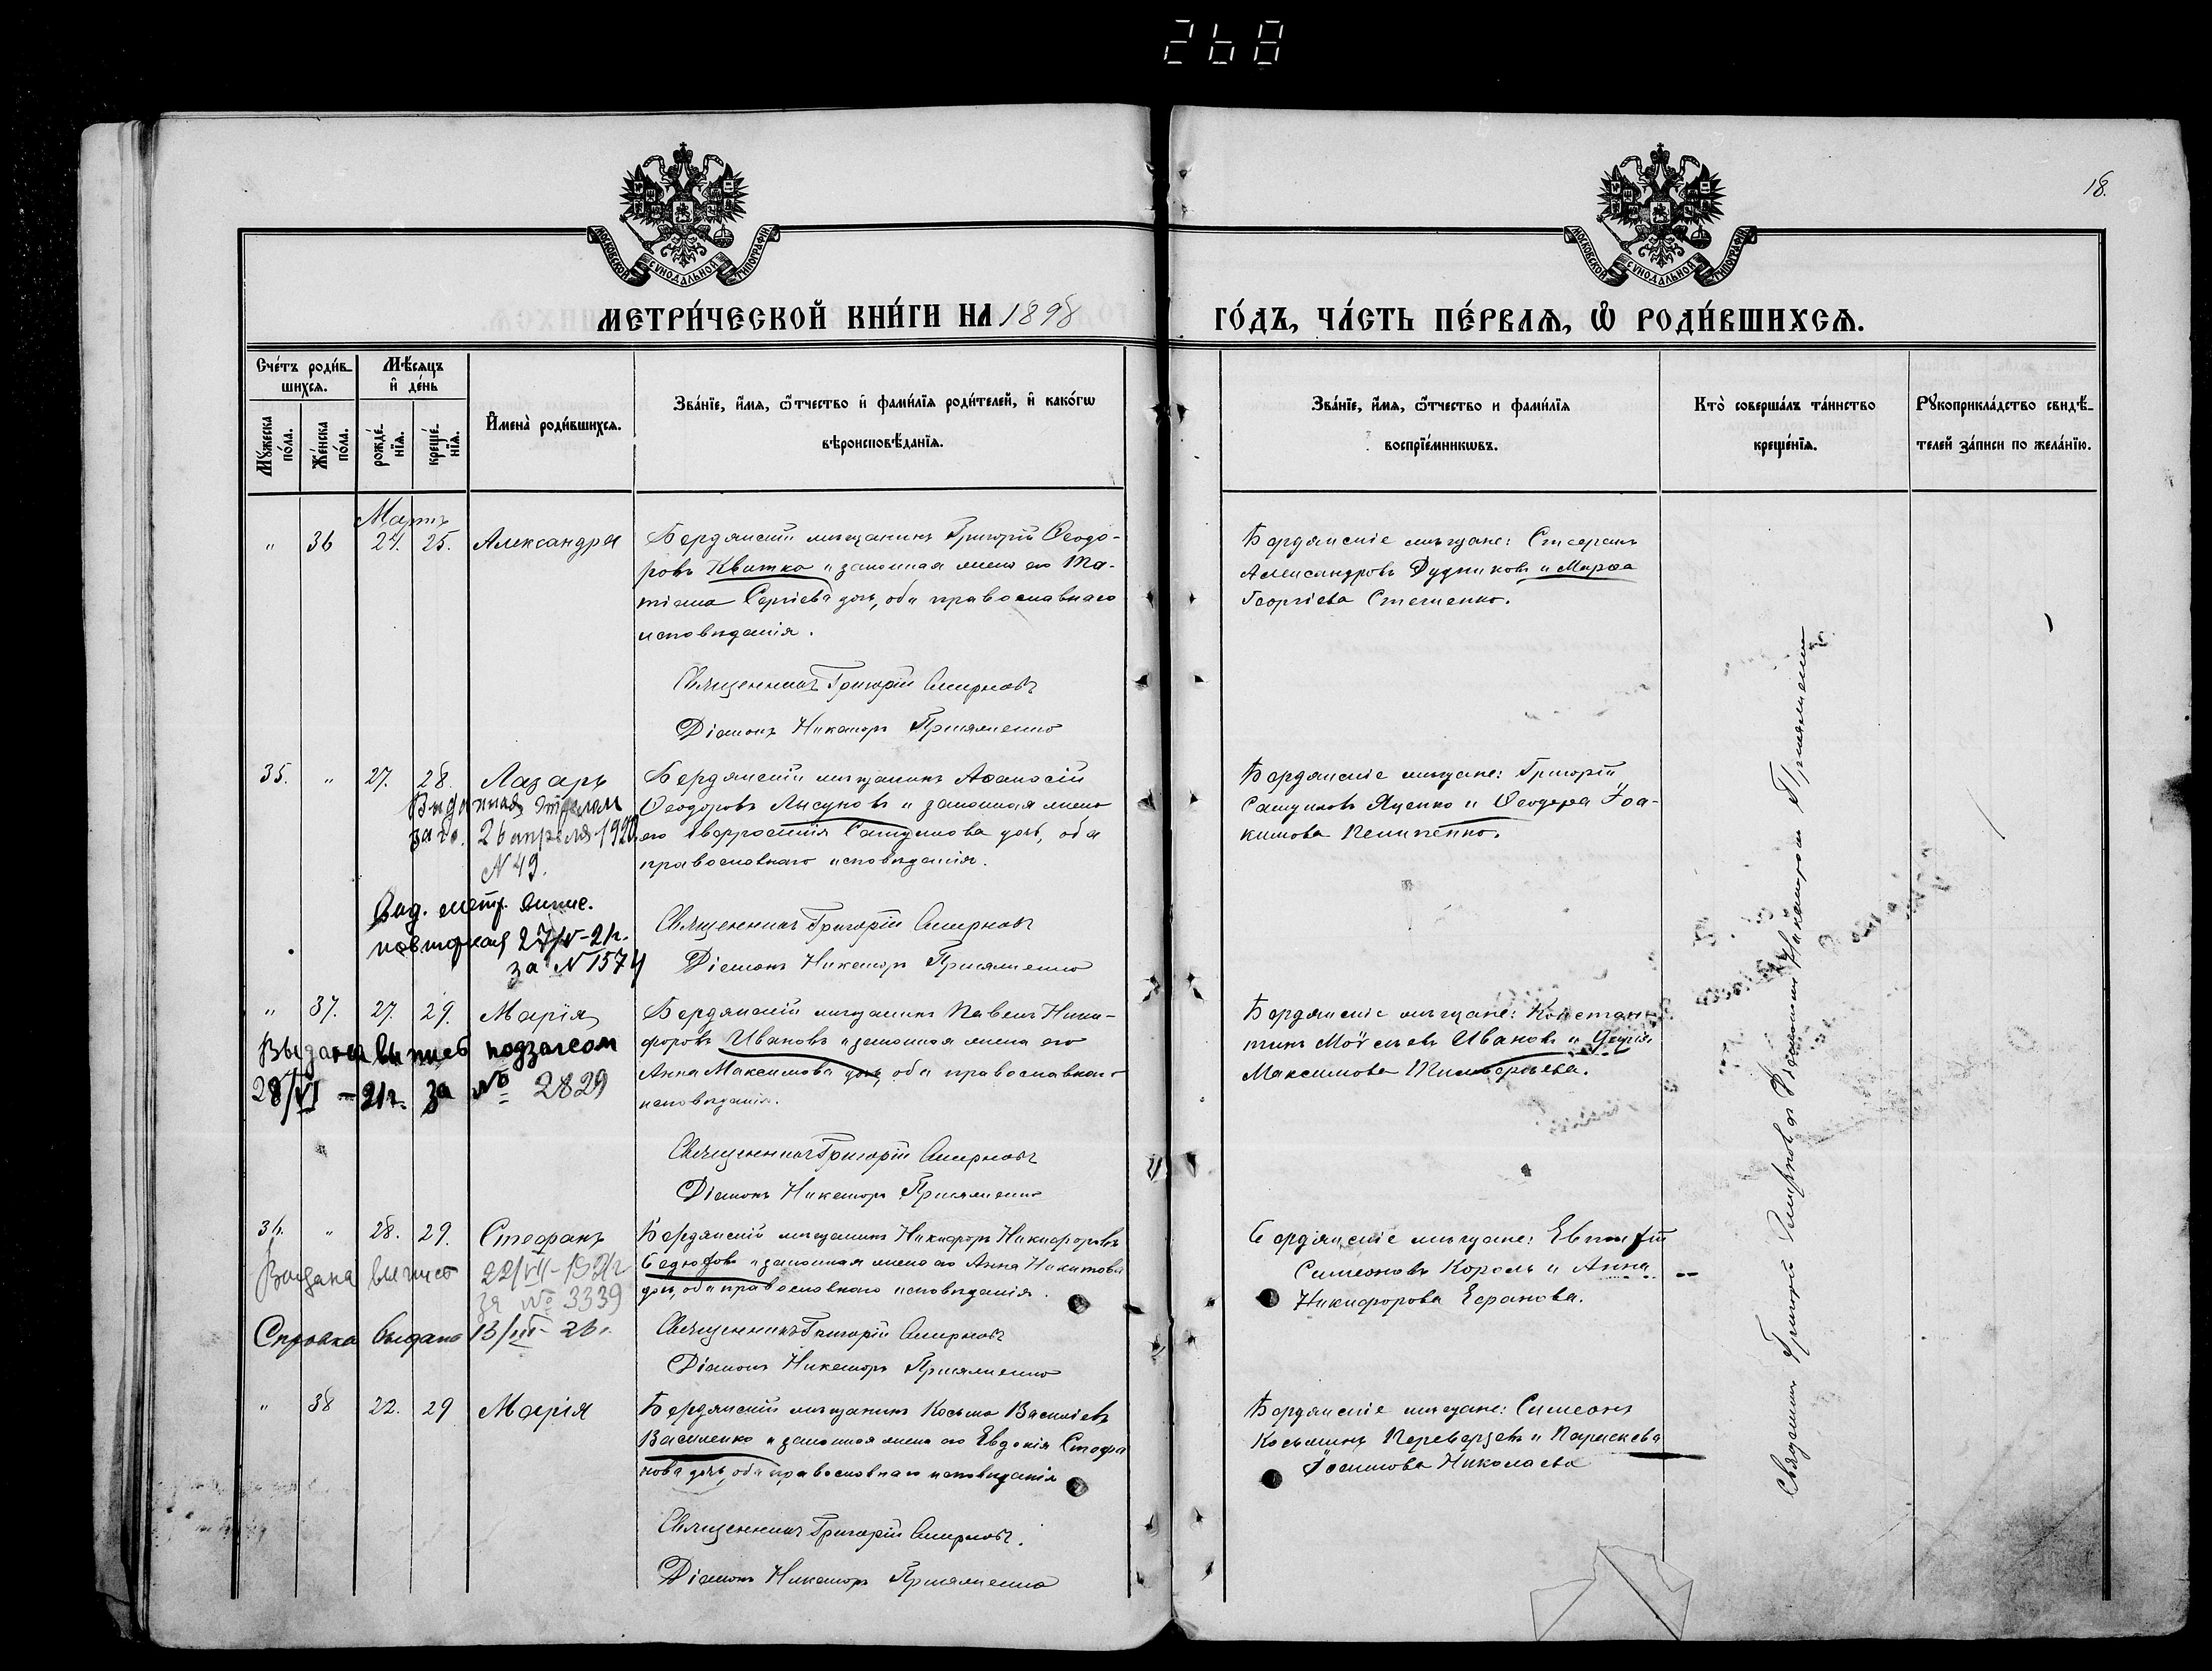 268
18.
МОСКОВСКОЙ СУНОДАЛЬНОЙ ТИПОГРАФІИ
МОСКОВСКОЙ СУНОДАЛЬНОЙ ТИПОГРАФІИ
МЕТРИ́ЧЕСКОЙ КНИ́ГИ НА 1898
ГО́ДЪ, ЧА́СТЬ ПЕ́РВАѦ, Ѡ РОДИ́ВШИХСѦ.
Сче́тъ роди́в-
шихсѧ.
Мꙋжеска по́ла.
Же́нска по́ла.
Мѣ́сѧцъ
и де́нь
рожде́-
нїѧ.
креще́-
нїѧ.
Имена̀ роди́вшихсѧ.
Зва́нїе, и́мѧ, ѻ́тчество и фами́лїѧ роди́телей, и како́гѡ
вѣроисповѣ́данїѧ.
Зва́нїе, и́мѧ, ѻ́тчество и фами́лїѧ
воспрїе́мникѡвъ.
Кто̀ соверша́лъ та́инство
креще́нїѧ.
Рꙋкоприкла́дство свидѣ́-
телей за́писи по жела́нїю.
Мартъ
" 36 24. 25. Александра
Бердянскій мѣщанинъ Григорій Ѳеодо-
ровъ Квитко и законная жена его Та-
тіана Сергіева дочь, оба православнаго
исповѣданія.
Священникъ Григорій Смирновъ
Діаконъ Никаноръ Присяженко
Бердянскіе мѣщане: Стефанъ
Александровъ Дудниковъ и Марѳа
Георгіева Стешенко.
35. " 27. 28. Лазарь
26 апреля 1920
N 49.
метр. выпис.
повторная 27/V-21г.
за N 1574
Бердянскій мѣщанинъ Аѳанасій
Ѳеодоровъ Лысуновъ и законная жена
его Сампсонова дочь, оба
православнаго исповѣданія.
Священникъ Григорій Смирновъ
Діаконъ Никаноръ Присяженко
Бердянскіе мѣщане: Григорій
Яценко и Ѳеодора Іоа-
кимова
" 37. 27. 29. Марія
Выдана выпись подзагсом
28/VI - 21г. за № 2829
Бердянскій мѣщанинъ Павелъ Ники-
форовъ Ивановъ и законная жена его
Анна Максимова дочь, оба православнаго
исповѣданія.
Священникъ Григорій Смирновъ
Діаконъ Никаноръ Присяженко
Бердянскіе мѣщане: Констан-
тинъ Моѵсеевъ Ивановъ и
Максимова
36. " 28. 29. Стефанъ
Выдана выпись 22/VII-1921г
за № 3339
Справка выдана 13/III- 26г.
Бердянскій мѣщанинъ Никифоръ Никифоровъ
и законная жена его Анна Никитова
дочь, оба православнаго исповѣданія.
Священникъ Григорій Смирновъ
Діаконъ Никаноръ Присяженко
Бердянскіе мѣщане: Евтихій
Симеоновъ Король и Анна
Никифорова
" 38 22. 29 Марія
Бердянскій мѣщанинъ Косьма Васильевъ
Василенко и законная жена его Евдокія Стефа
нова дочь, оба православнаго исповѣданія
Священникъ Григорій Смирновъ.
Діаконъ Никаноръ Присяженко
Бердянскіе мѣщане: Симеонъ
Косьминъ Переверзевъ и Параскева
Николаева
Священникъ Григорій Смирновъ съ Діакономъ Никаноромъ Присяженко